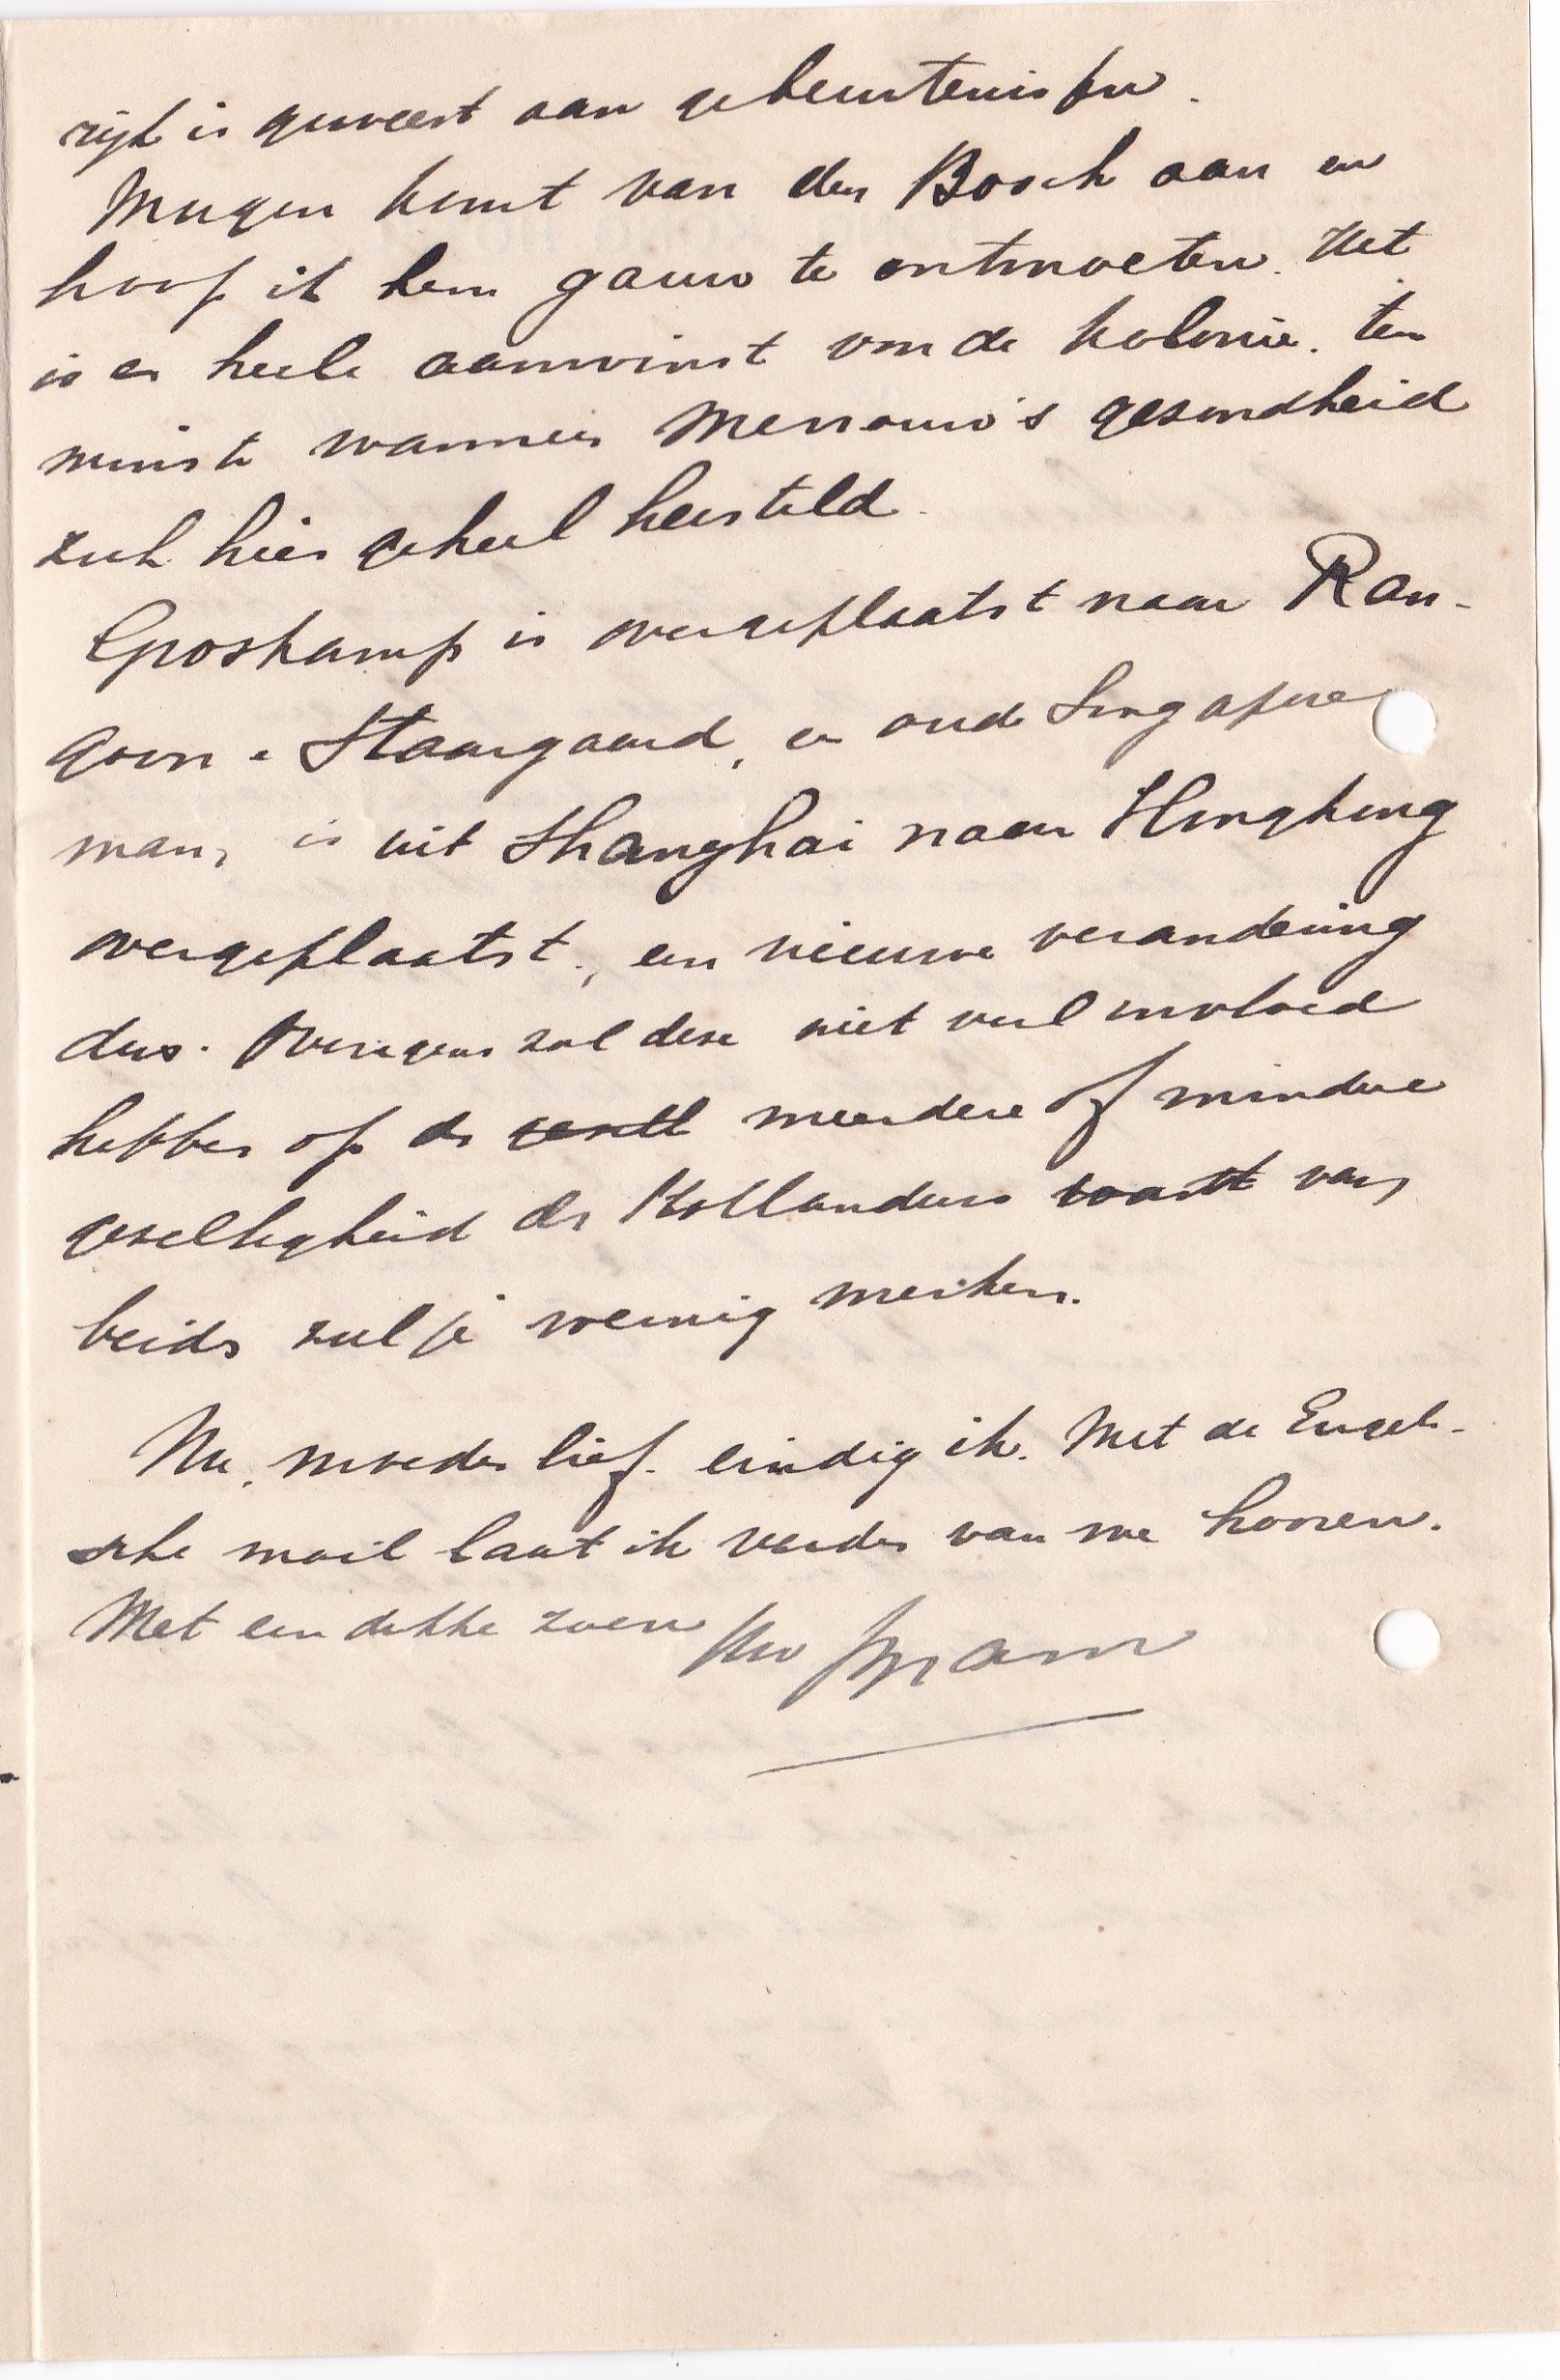 rijk is geweest aan gebeurtenissen.
Morgen komt van den Bosch aan en
hoop ik hem gauw te ontmoeten. Het
is en heele aanwinst voor de kolonie. ten
minste wanneer Mevrouw's gezondheid
zich hier geheel hersteld.
Groskamp is overgeplaatst naar Ran-
goon. Staargaard, en oude Singapore
man, is uit Shanghai naar Hongkong
overgeplaatst, een nieuwe verandering
dus. Overigens zal deze niet veel invloed
hebben op de meerdere of mindere
gezelligheid der Hollanders want van
beide zul je weinig merken.
Nu, moeder lief. eindig ik. Met de Engel-
sche mail laat ik verder van me hooren.
Met een dikke zoen Uw